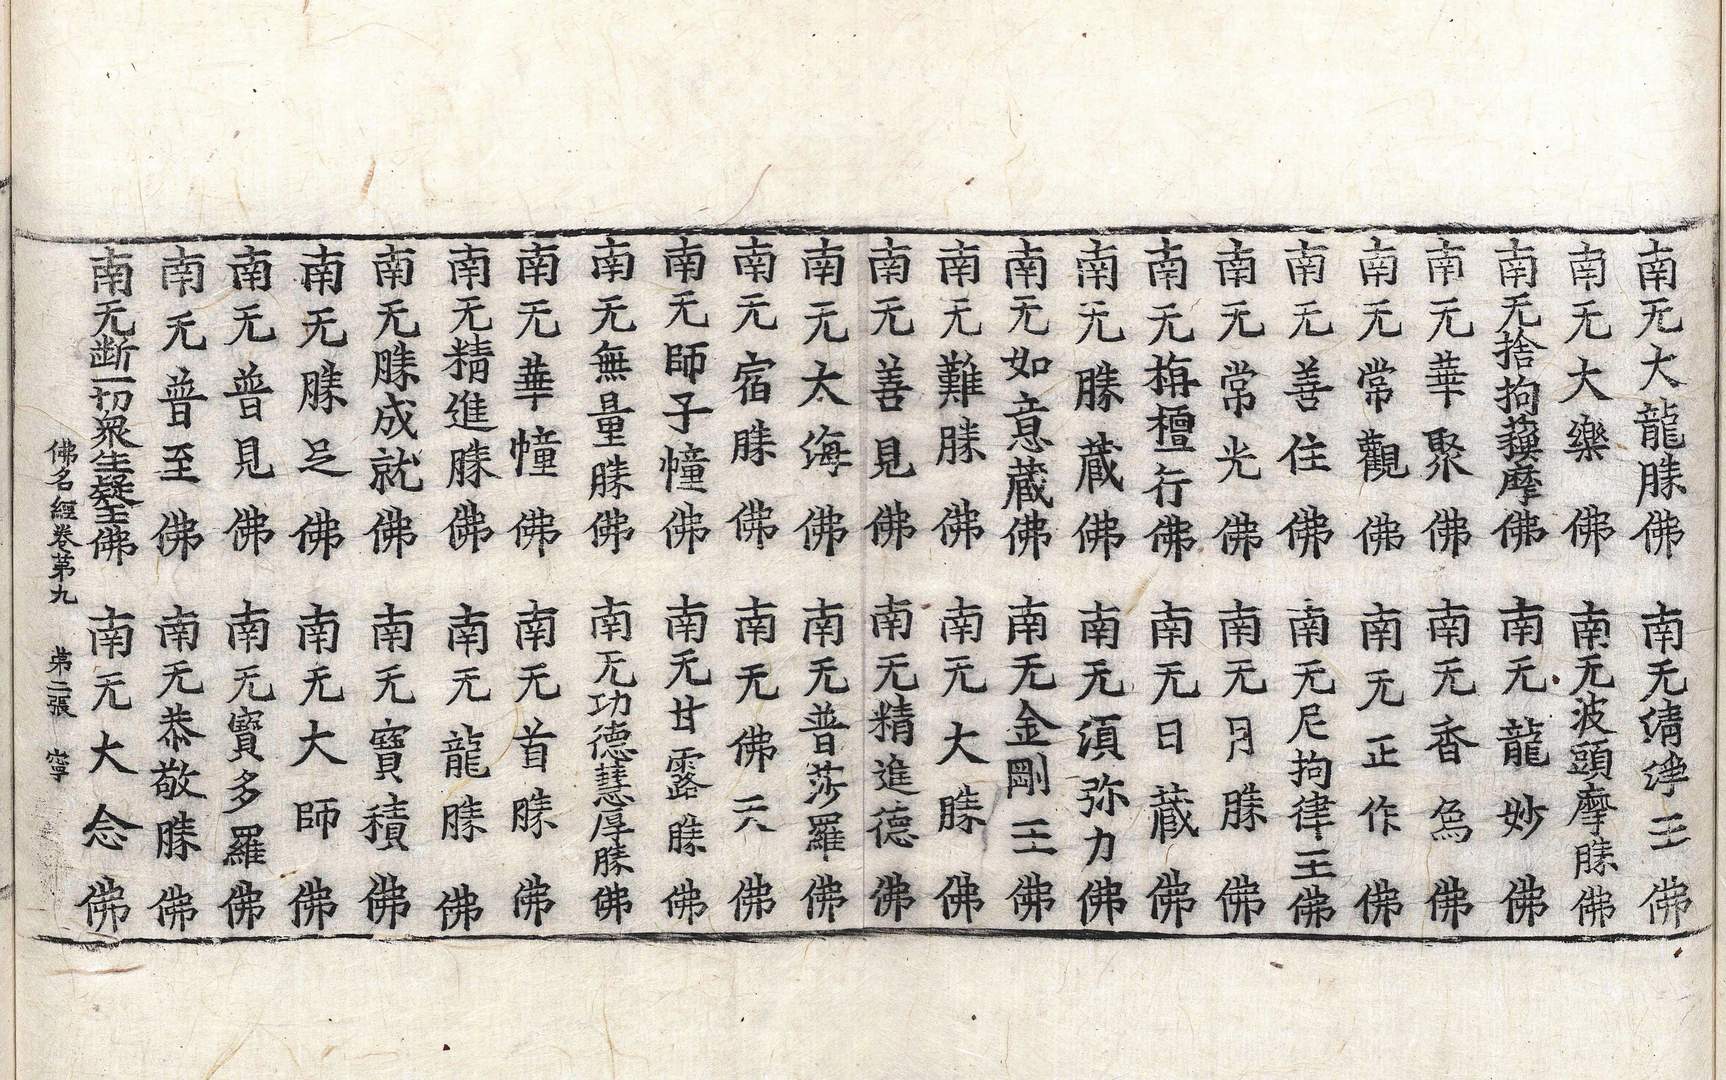 南无大龍勝佛　南无清淨王佛
南无大樂佛　南无波頭摩勝佛
南无捨拘蘋摩佛　南无龍妙佛
南无華聚佛　南无香為佛
南无常觀佛　南无正作佛
南无善住佛　南无尼拘律王佛
南无常光佛　南无月勝佛
南无栴檀行佛　南无日藏佛
南无勝藏佛　南无須弥力佛
南无如意藏佛　南无金剛王佛
南无難勝佛　南无大勝佛
南无善見佛　南无精進德佛
南无太海佛　南无普莎羅佛
南无宿勝佛　南无佛天佛
南无師子幢佛　南无甘露勝佛
南无無量勝佛　南无功德慧厚勝佛
南无華幢佛　南无首勝佛
南无精進勝佛　南无龍勝佛
南无勝成就佛　南无寶積佛
南无勝足佛　南无大師佛
南无普見佛　南无寶多羅佛
南无普至佛　南无恭敬勝佛
南无斷一切衆生疑王佛　南无大念佛
佛名經卷第九　第二張　寧